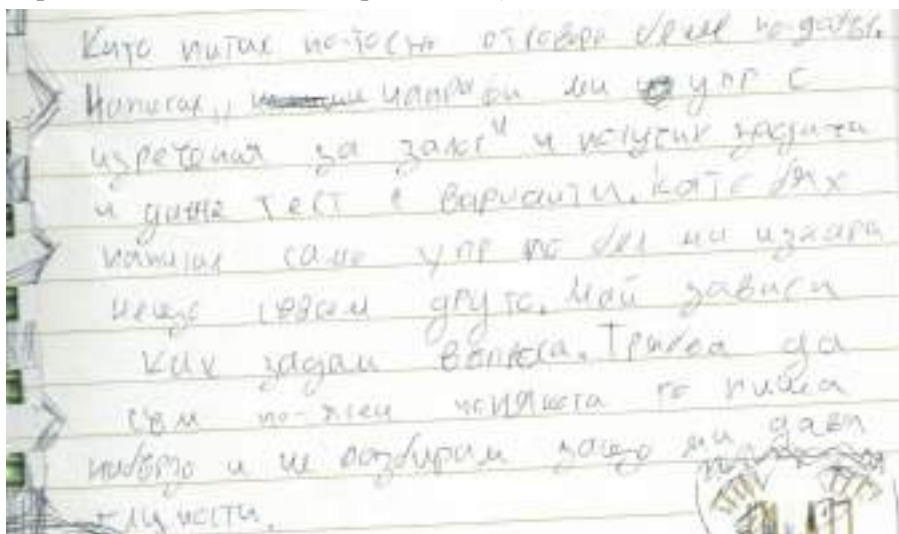 Като питах по-точно отговора беше по-добър.
Написах „ направи ми упр с
изречения за залог“ и получих задачи
и даже тест с варианти. Като бях
написал само упр по бел ми изкара
нещо съвсем друго. Май зависи
как задам въпроса. Трябва да
съм по-ясен понякога го пиша
набързо и не разбирам защо ми дава
глупости.